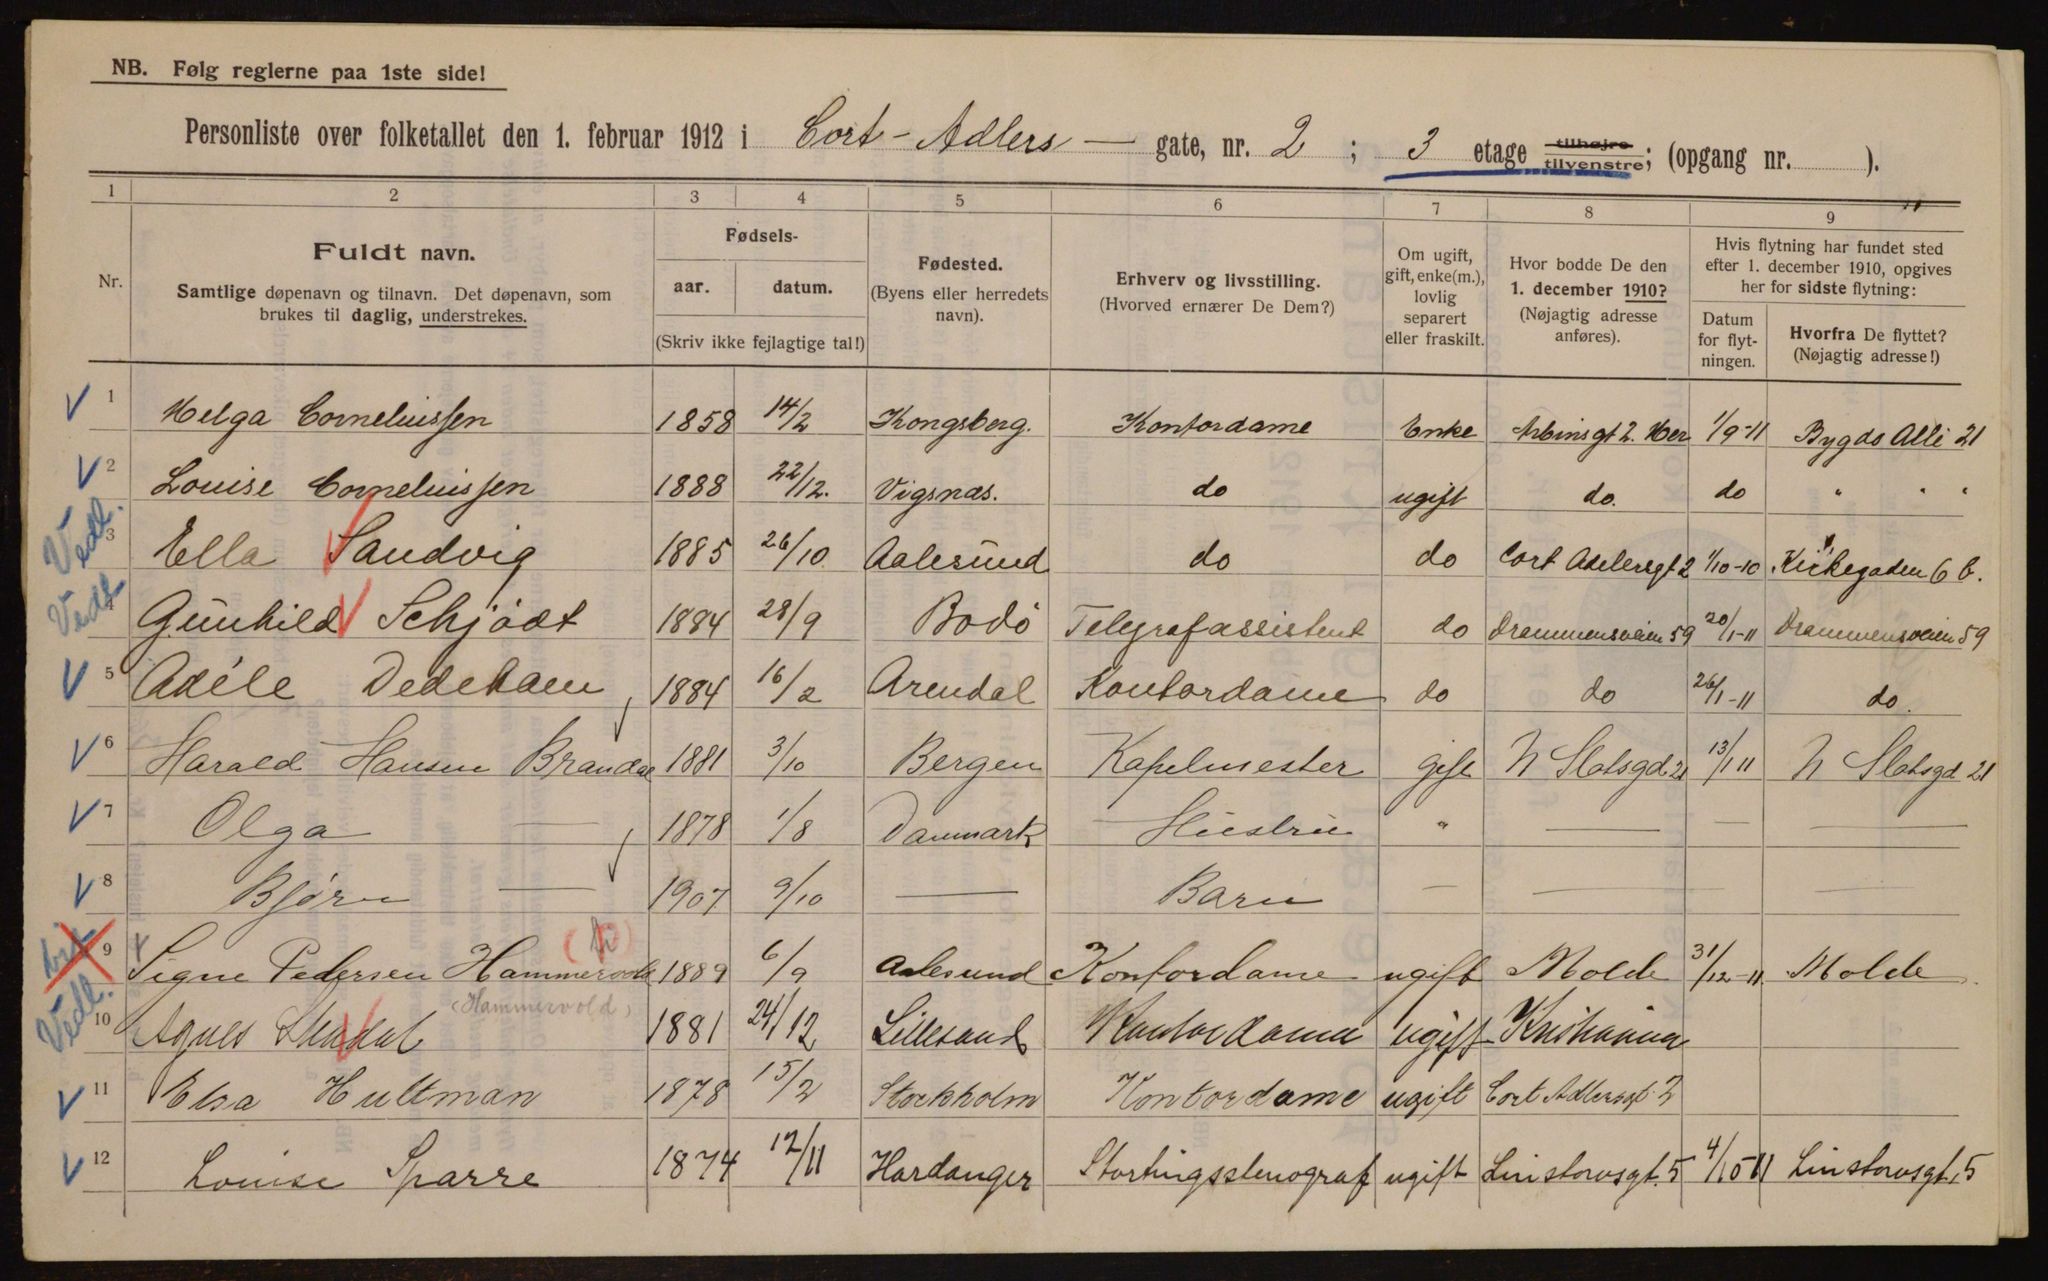 NB. Følg reglerne paa 1ste side!
Personliste over folketallet den 1. februar 1912 i Cort-Adlers — gate, nr. 2 ; 3 etage tilhøjre tilvenstre; (opgang nr. ).
1 2 3 4 5 6 7 8 9
Nr.
Fuldt navn.
Samtlige døpenavn og tilnavn. Det døpenavn, som
brukes til daglig, understrekes.
Fødsels-
aar. datum.
(Skriv ikke fejlagtige tal!)
Fødested.
(Byens eller herredets
navn).
Erhverv og livsstilling.
(Hvorved ernærer De Dem?)
Om ugift,
gift, enke(m.),
lovlig
separert
eller fraskilt.
Hvor bodde De den
1. december 1910?
(Nøjagtig adresse
anføres).
Hvis flytning har fundet sted
efter 1. december 1910, opgives
her for sidste flytning:
Datum
for flyt-
ningen.
Hvorfra De flyttet?
(Nøjagtig adresse!)
1 Helga Corneliussen 1858 14/2 Kongsberg. Kontordame Enke Arbinsgt 2. Her 1/9-11 Bygdø Allé 21
2 Louise Corneliussen 1888 22/12. Vigsnæs. do ugift do. do " " "
Vedl. 3 Ella Sandvig 1885 26/10 Aalesund do do Cort Adelersgt 2 1/10-10 Kirkegaden 6 b.
Vedl. 4 Gunhild Schjødt 1884 28/9 Bodø Telegrafassistent do Drammensveien 59 20/1-11 Drammensveien 59
5 Adéle Dedekam 1884 16/2 Arendal Kontordame do do 26/1-11 do.
6 Harald Hansen Brandal 1881 3/10 Bergen Kapelmester gift N Slotsgd. 21 13/1 11 N Slotsgd 21
7 Olga — 1878 1/8 Danmark Hustru " — — —
8 Bjørn — 1907 9/10 — Barn — — — —
9 Signe Pedersen Hammervold 1889 6/9 Aalesund Kontordame ugift Molde 31/12-11. Molde
(Hammervold)
Vedl. 10 Agnes 1881 24/12 Lillesand Kontordame ugift Kristiania
11 Elsa Hultman 1878 15/2 Stockholm Kontordame ugift Cort Adlersgt. 2
12 Louise Sparre 1874 12/11 Hardanger Stortingsstenograf ugift Linstowsgt. 5 4/10 11 Linstowsgt. 5